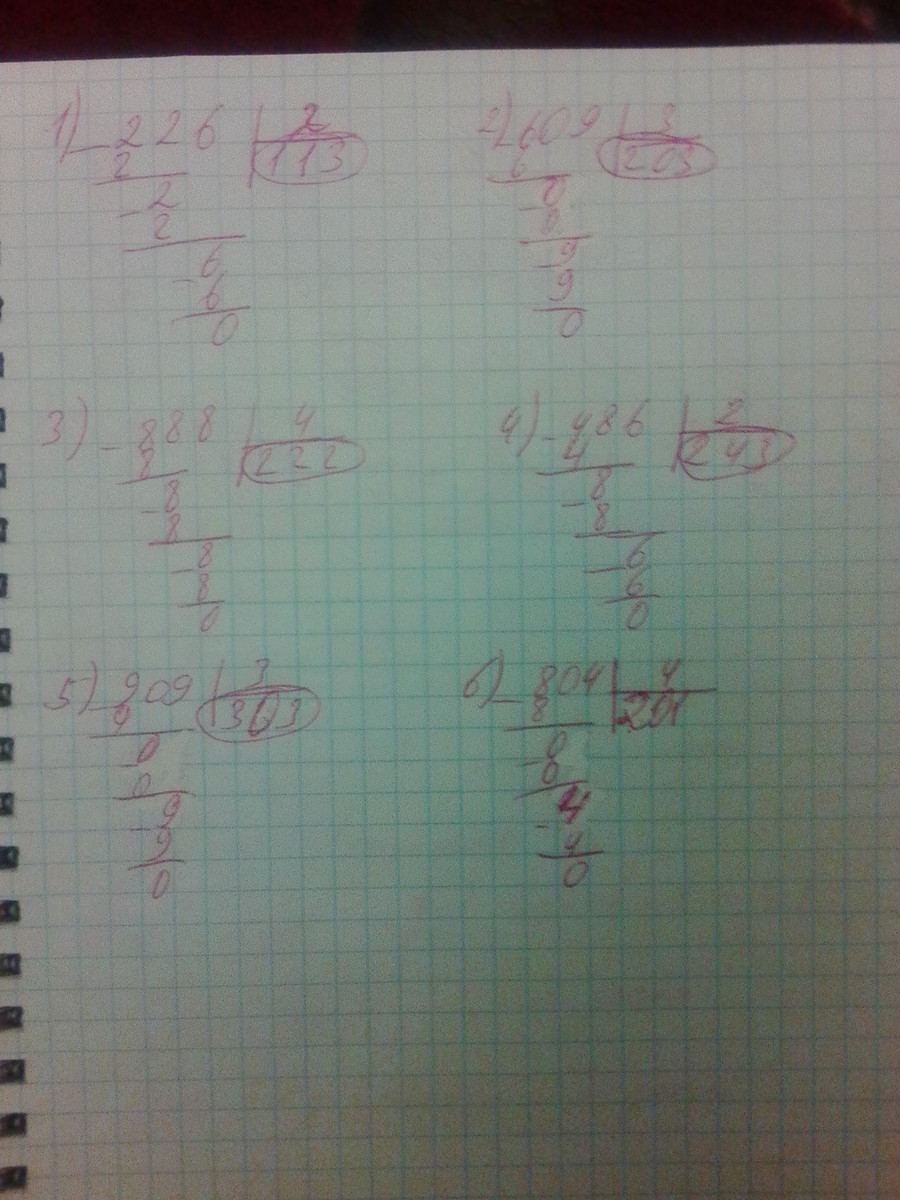 1) - 226 | 2
2 | 113
- 2
2
- 6
6
0
2) - 609 | 3
6 | 203
- 0
0
- 9
9
0
3) - 888 | 4
8 | 222
- 8
8
- 8
8
0
4) - 486 | 2
4 | 243
- 8
8
- 6
6
0
5) - 909 | 3
9 | 303
0
0
- 9
9
0
6) - 804 | 4
8 | 201
- 0
0
- 4
4
0